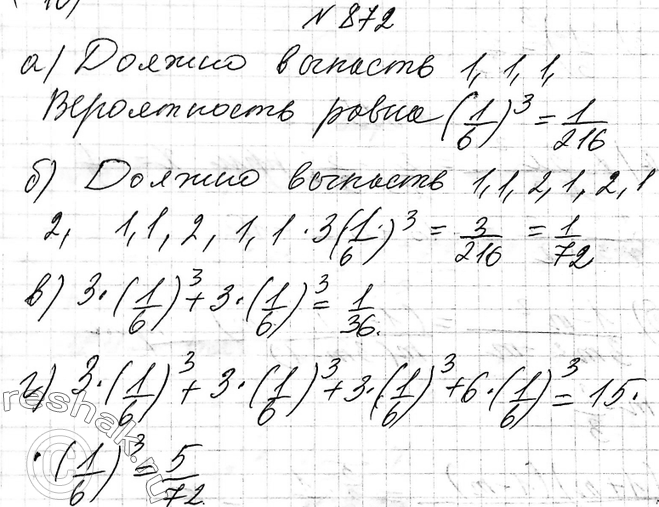 № 872
а) Должно выпасть 1, 1, 1,
Вероятность равна (1/6)^3 = 1/216
б) Должно выпасть 1, 1, 2, 1, 2, 1
2, 1, 1, 2, 1, 1 · 3(1/6)^3 = 3/216 = 1/72
в) 3·(1/6)^3 + 3·(1/6)^3 = 1/36.
г) 3·(1/6)^3 + 3·(1/6)^3 + 3·(1/6)^3 + 6·(1/6)^3 = 15·
·(1/6)^3 = 5/72.
reshak.ru